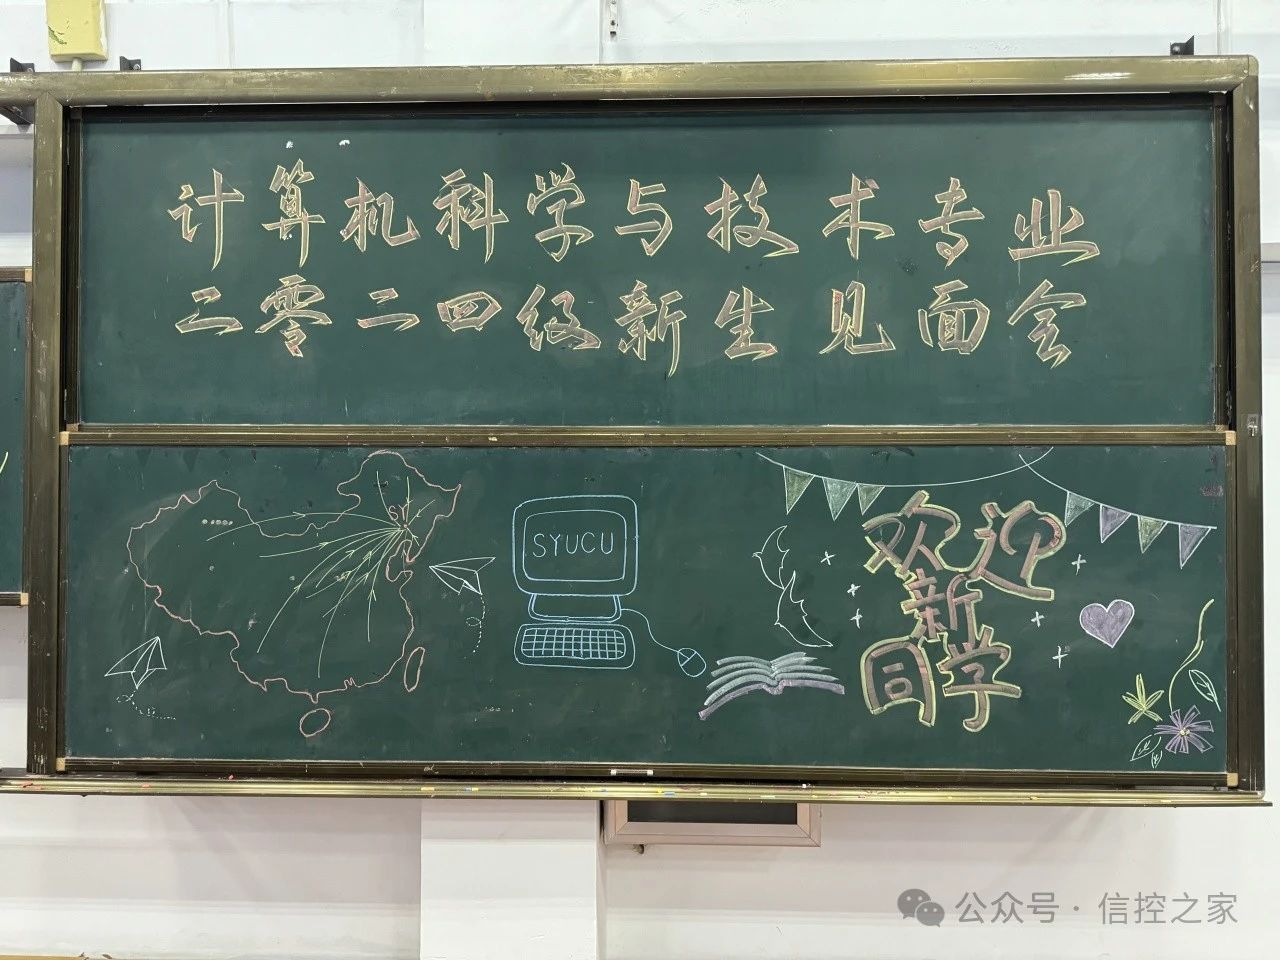 计算机科学与技术专业
二零二四级新生见面会
SY
SYUCU
欢迎
新
同学
公众号·信控之家